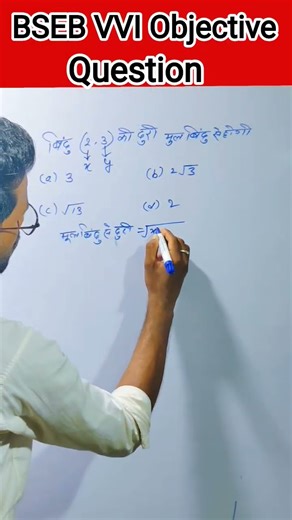 BSEB VVI Objective
Question
बिंदु (2, 3) की दुरी मुल बिंदु से होगी
x y
(a) 3 (b) 2√3
(c) √13 (d) 2
मूल बिंदु से दुरी = √x